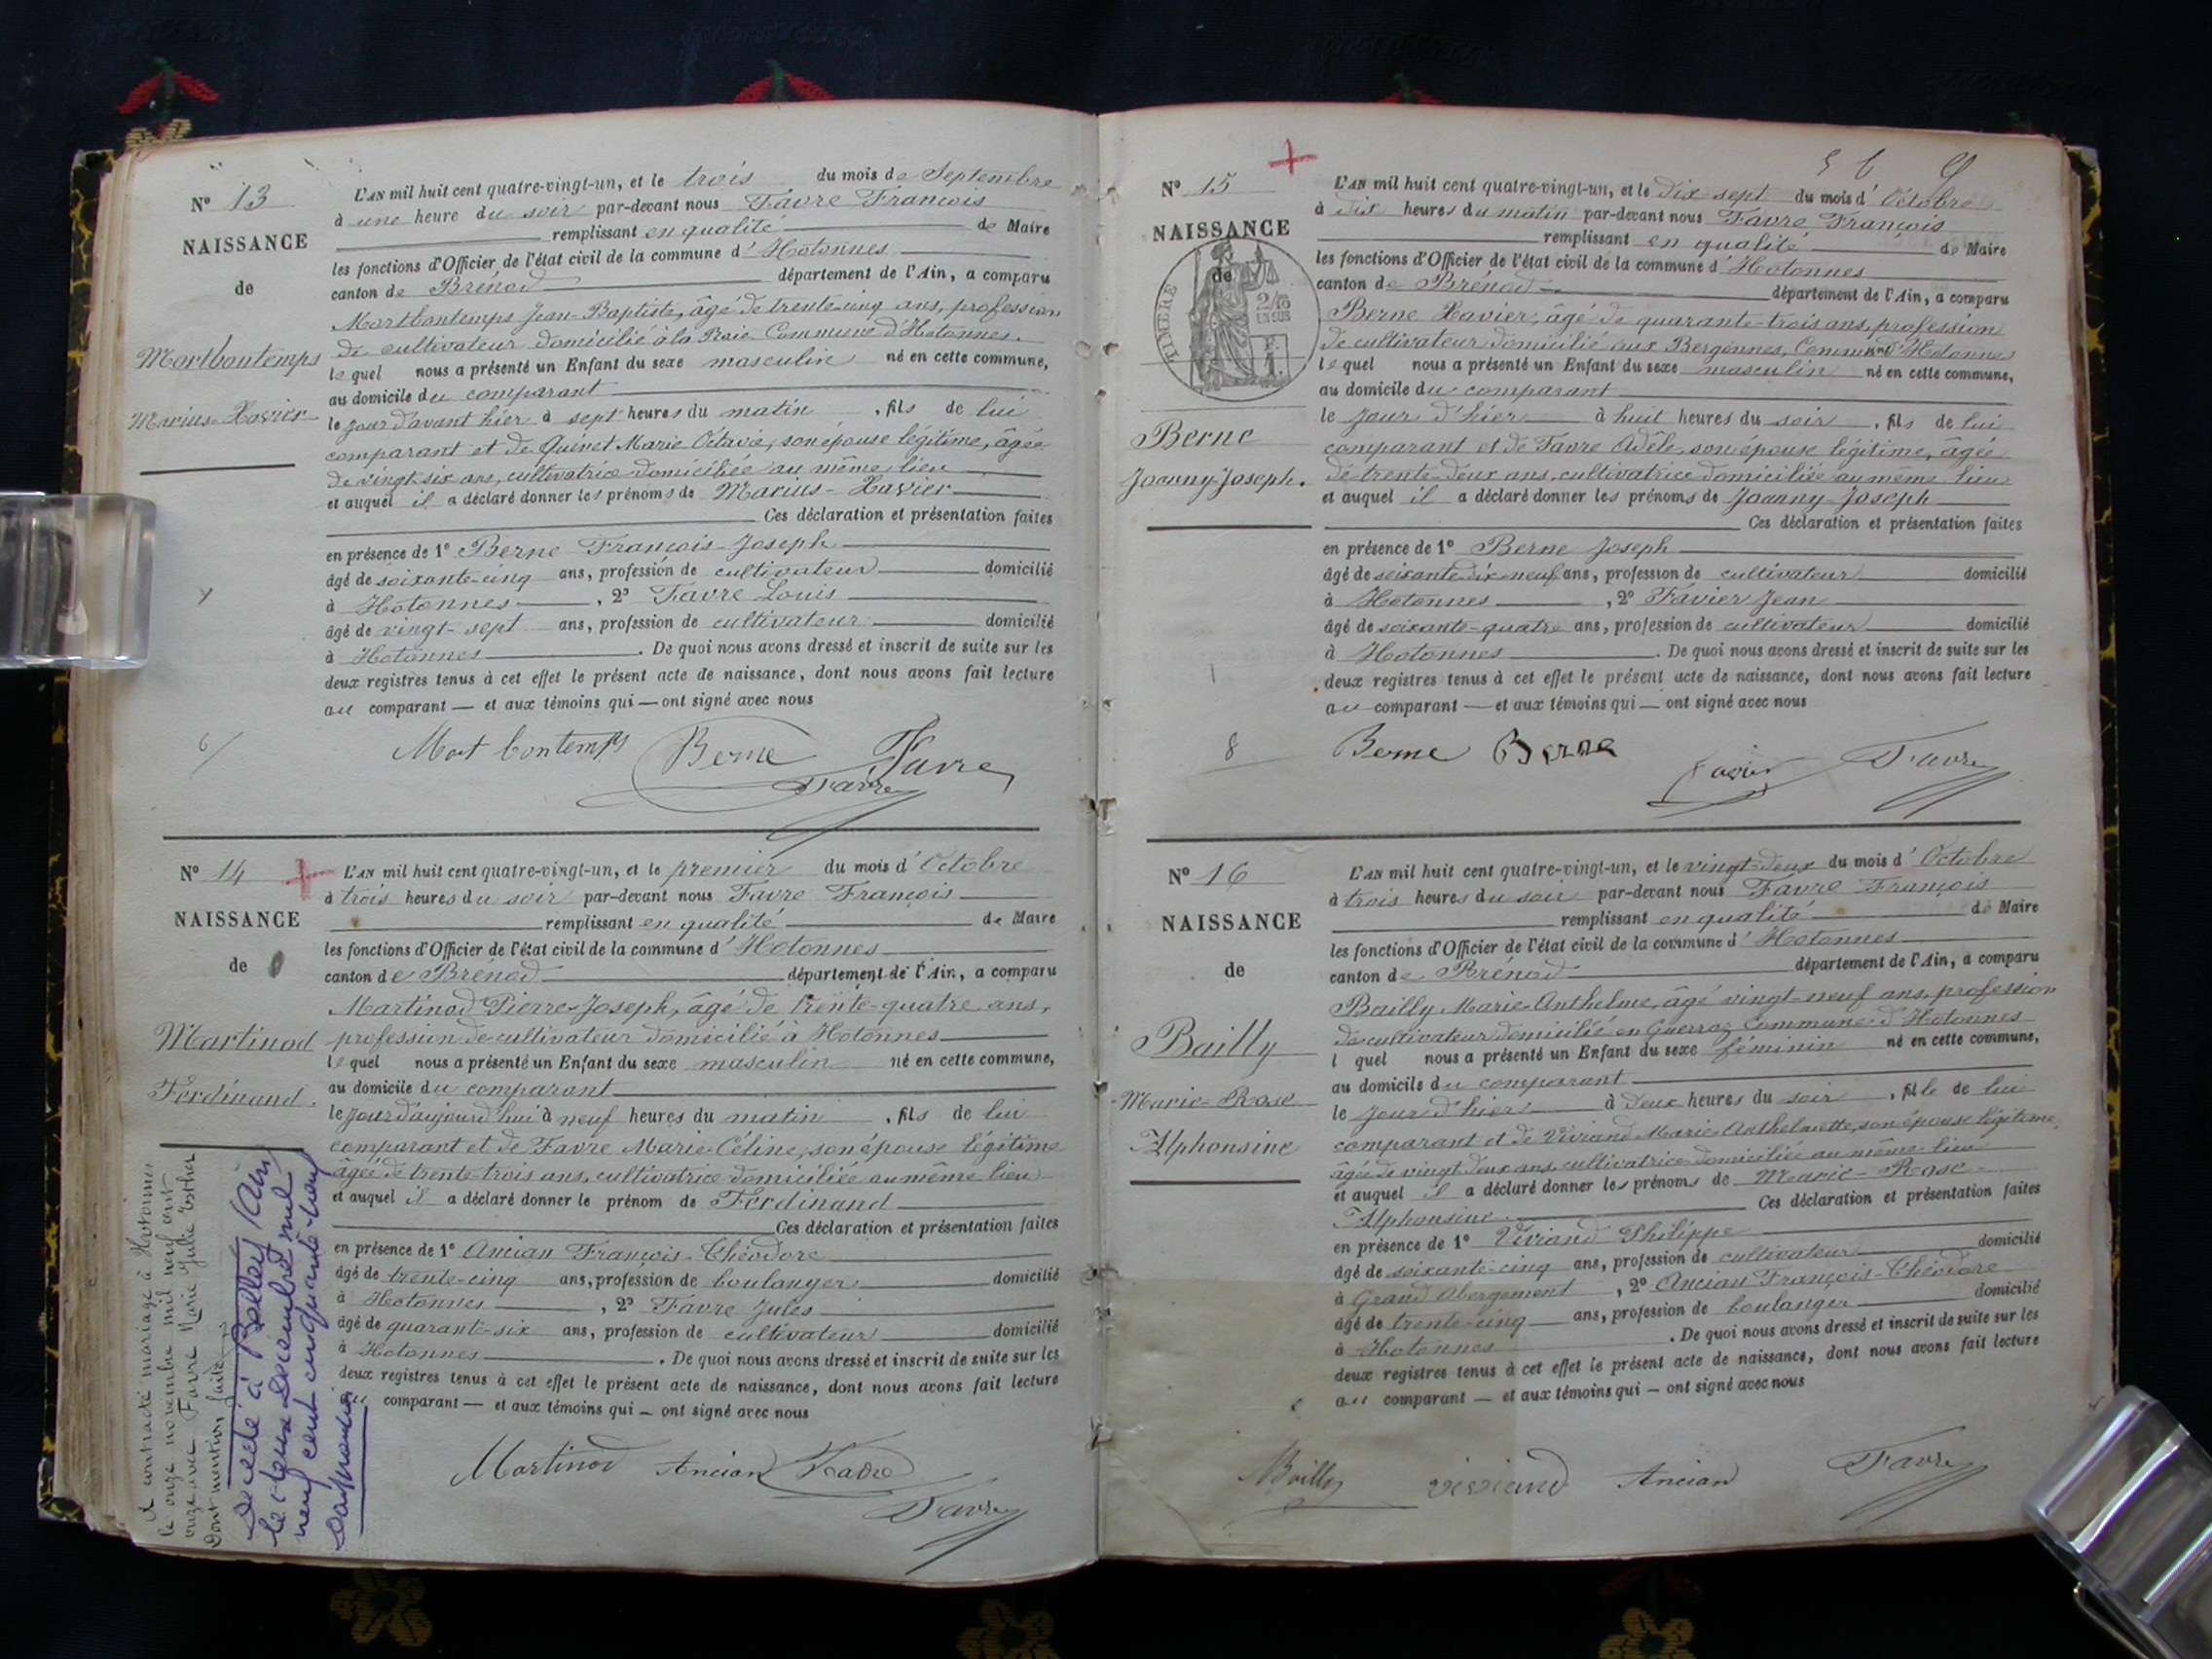 N° 13
NAISSANCE
de
Mortbontemps
Marius-Xavier
L'AN mil huit cent quatre-vingt-un, et le trois du mois de Septembre
à une heure du soir par-devant nous Favre François
remplissant en qualité de Maire
les fonctions d'Officier de l'état civil de la commune d'Hotonnes
canton de Brénod département de l'Ain, a comparu
Mortbontemps Jean-Baptiste, âgé de trente-cinq ans, profession
de cultivateur domicilié à la Praie Commune d'Hotonnes.
lequel nous a présenté un Enfant du sexe masculin né en cette commune,
au domicile du comparant
le jour d'avant hier à sept heures du matin, fils de lui
comparant et de Quinet Marie Octavie, son épouse légitime, âgée
de vingt six ans, cultivatrice domiciliée au même lieu
et auquel il a déclaré donner les prénoms de Marius-Xavier
Ces déclaration et présentation faites
en présence de 1° Berne François-Joseph
âgé de soixante-cinq ans, profession de cultivateur domicilié
à Hotonnes, 2° Favre Louis
âgé de vingt-sept ans, profession de cultivateur domicilié
à Hotonnes. De quoi nous avons dressé et inscrit de suite sur les
deux registres tenus à cet effet le présent acte de naissance, dont nous avons fait lecture
au comparant — et aux témoins qui — ont signé avec nous
6
Mortbontemps Berne Favre
Favre
N° 14
NAISSANCE
de
Martinod
Ferdinand.
L'AN mil huit cent quatre-vingt-un, et le premier du mois d'Octobre
à trois heures du soir par-devant nous Favre François
remplissant en qualité de Maire
les fonctions d'Officier de l'état civil de la commune d'Hotonnes
canton de Brénod département de l'Ain, a comparu
Martinod Pierre-Joseph, âgé de trente-quatre ans,
profession de cultivateur domicilié à Hotonnes
lequel nous a présenté un Enfant du sexe masculin né en cette commune,
au domicile du comparant
le jour d'aujourd'hui à neuf heures du matin, fils de lui
comparant et de Favre Marie-Céline, son épouse légitime
âgée de trente-trois ans, cultivatrice domiciliée au même lieu
et auquel il a déclaré donner le prénom de Ferdinand
Ces déclaration et présentation faites
en présence de 1° Ancian François-Théodore
âgé de trente-cinq ans, profession de boulanger domicilié
à Hotonnes, 2° Favre Jules
âgé de quarante-six ans, profession de cultivateur domicilié
à Hotonnes. De quoi nous avons dressé et inscrit de suite sur les
deux registres tenus à cet effet le présent acte de naissance, dont nous avons fait lecture
au comparant — et aux témoins qui — ont signé avec nous
Martinod Ancian Favre
Favre
A contracté mariage à Hotonnes
le onze novembre mil neuf cent
onze avec Favre Marie Julie Esther
Dont mention faite
Décédé à Belley (Ain)
le deux Décembre mil
neuf cent cinquante-neuf
N° 15
NAISSANCE
de
TIMBRE
2/10
EN SUS
Berne
Joanny-Joseph.
5 6 9
L'AN mil huit cent quatre-vingt-un, et le dix-sept du mois d'Octobre
à dix heures du matin par-devant nous Favre François
remplissant en qualité de Maire
les fonctions d'Officier de l'état civil de la commune d'Hotonnes
canton de Brénod département de l'Ain, a comparu
Berne Xavier, âgé de quarante-trois ans, profession
de cultivateur domicilié aux Bergonnes, Commune d'Hotonnes
lequel nous a présenté un Enfant du sexe masculin né en cette commune,
au domicile du comparant
le jour d'hier à huit heures du soir, fils de lui
comparant et de Favre Adèle, son épouse légitime, âgée
de trente-deux ans, cultivatrice domiciliée au même lieu
et auquel il a déclaré donner les prénoms de Joanny-Joseph
Ces déclaration et présentation faites
en présence de 1° Berne Joseph
âgé de soixante-dix-neuf ans, profession de cultivateur domicilié
à Hotonnes, 2° Favier Jean
âgé de soixante-quatre ans, profession de cultivateur domicilié
à Hotonnes. De quoi nous avons dressé et inscrit de suite sur les
deux registres tenus à cet effet le présent acte de naissance, dont nous avons fait lecture
au comparant — et aux témoins qui — ont signé avec nous
8
Berne Berne Favier Favre
N° 16
NAISSANCE
de
Bailly
Marie-Rose
Alphonsine
L'AN mil huit cent quatre-vingt-un, et le vingt-deux du mois d'Octobre
à trois heures du soir par-devant nous Favre François
remplissant en qualité de Maire
les fonctions d'Officier de l'état civil de la commune d'Hotonnes
canton de Brénod département de l'Ain, a comparu
Bailly Marie-Anthelme, âgé vingt-neuf ans, profession
de cultivateur domicilié en Guerraz Commune d'Hotonnes
l quel nous a présenté un Enfant du sexe féminin né en cette commune,
au domicile du comparant
le jour d'hier à deux heures du soir, fille de lui
comparant et de Viviand Marie-Anthelmette, son épouse légitime,
âgée de vingt deux ans, cultivatrice domiciliée au même lieu
et auquel il a déclaré donner les prénoms de Marie-Rose
Alphonsine. Ces déclaration et présentation faites
en présence de 1° Viviand Philippe
âgé de soixante-cinq ans, profession de cultivateur domicilié
à Grand Abergement, 2° Ancian François-Théodore
âgé de trente-cinq ans, profession de boulanger domicilié
à Hotonnes. De quoi nous avons dressé et inscrit de suite sur les
deux registres tenus à cet effet le présent acte de naissance, dont nous avons fait lecture
au comparant — et aux témoins qui — ont signé avec nous
Bailly viviand Ancian Favre